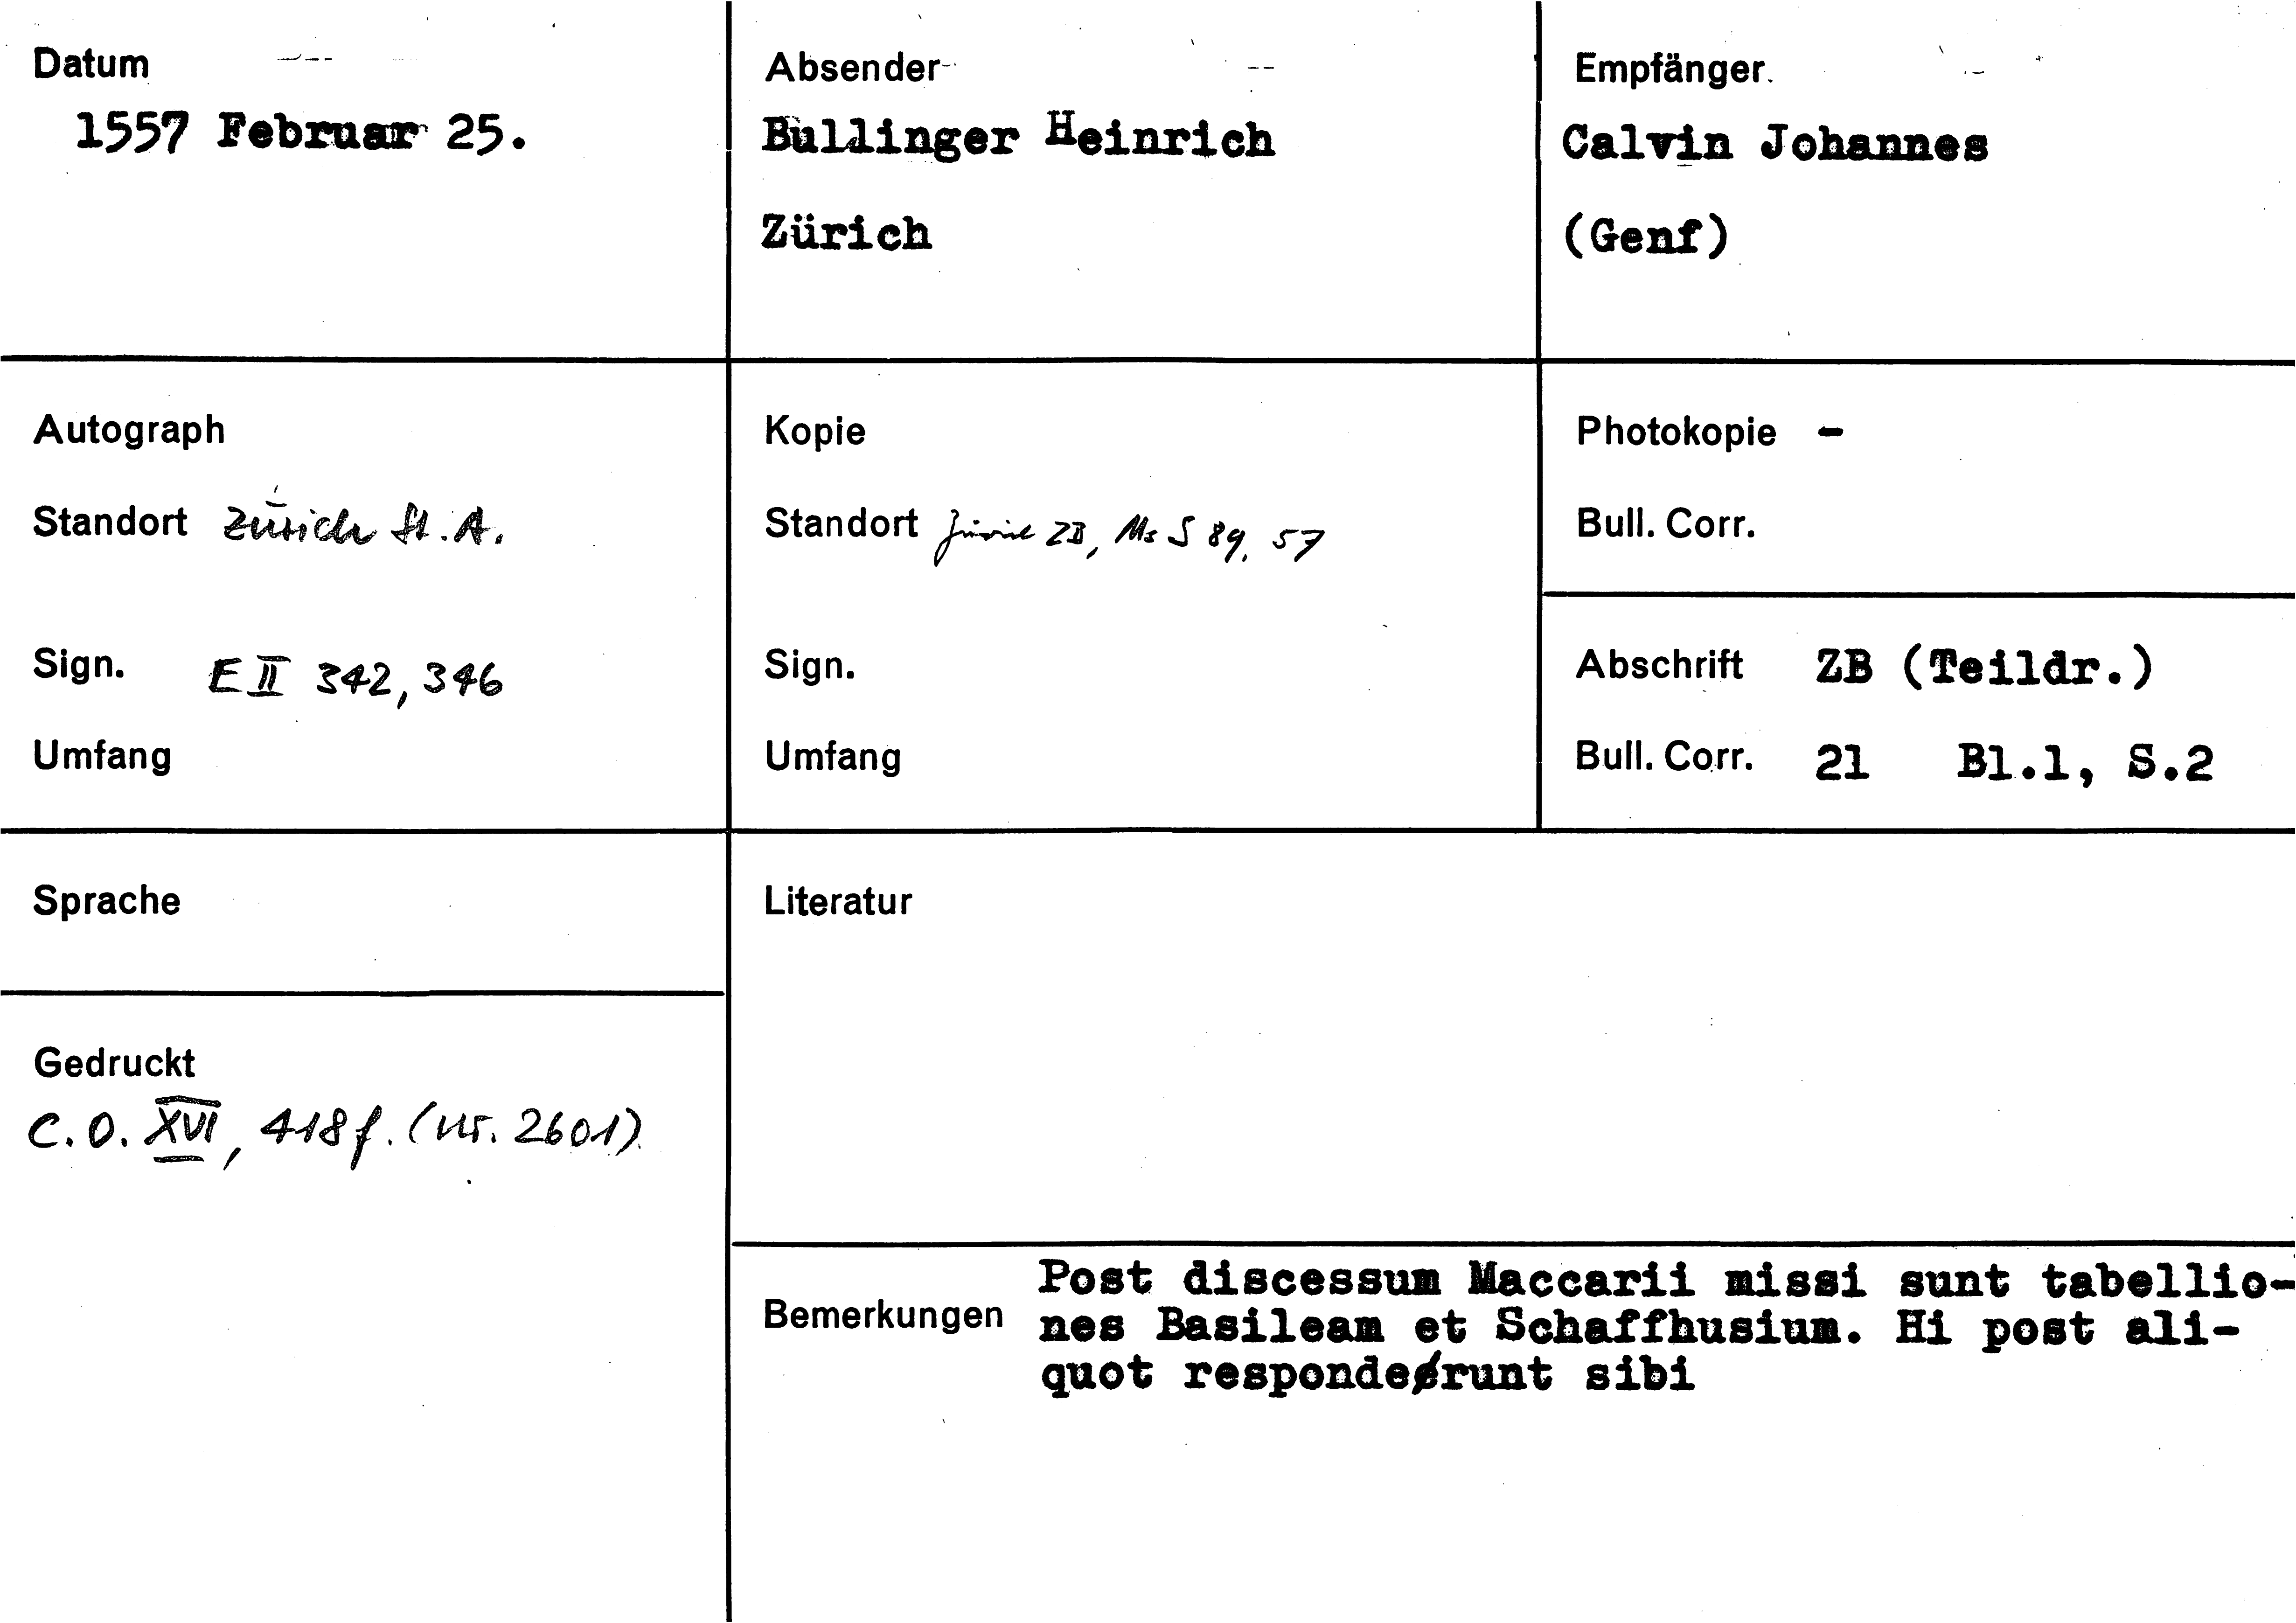 Datum
1557 Februar 25.
Absender
Bullinger Heinrich
Zürich
Empfänger
Calvin Johannes
(Genf)
Autograph
Standort Zürich St. A.
Sign. E II 342, 346
Umfang
Kopie
Standort Zürich ZB, Ms S 89, 57
Sign.
Umfang
Photokopie -
Bull. Corr.
Abschrift ZB (Teildr.)
Bull. Corr. 21 Bl.1, S.2
Sprache
Gedruckt
C. O. XVI, 418 f. (Nr. 2601)
Literatur
Bemerkungen
Post discessum Maccarii missi sunt tabellio-
nes Basileam et Schaffhusium. Hi post ali-
quot responderunt sibi